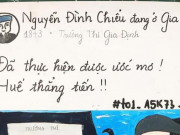 Nguyễn Đình Chiểu đang ở Gia
1843 • Trường Thi Gia Định
Đã thực hiện được ước mơ !
Huế thẳng tiến !!
#to1_A5K73
TRƯỜNG THI